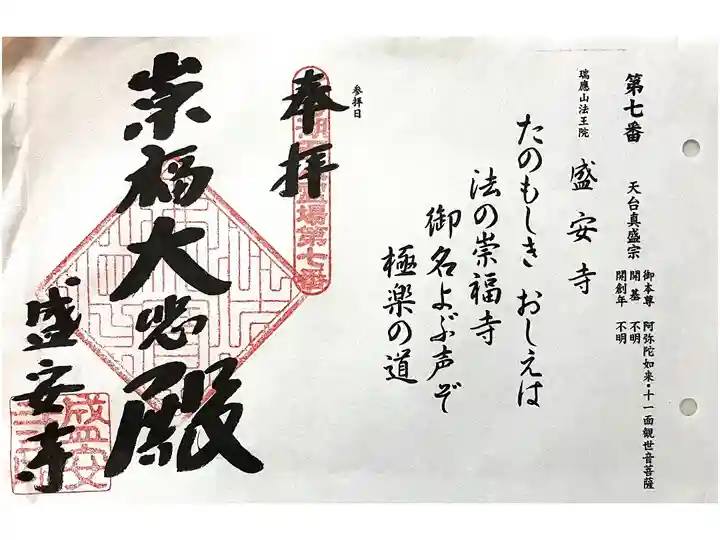 第七番
天台真盛宗
御本尊 阿弥陀如来・十一面観世音菩薩
開基 不明
開創年 不明
瑞應山法王院
盛安寺
たのもしき おしえは
法の崇福寺
御名よぶ声ぞ
極楽の道
参拝日
奉拝
霊場第七番
崇福大悲殿
盛安寺
盛安